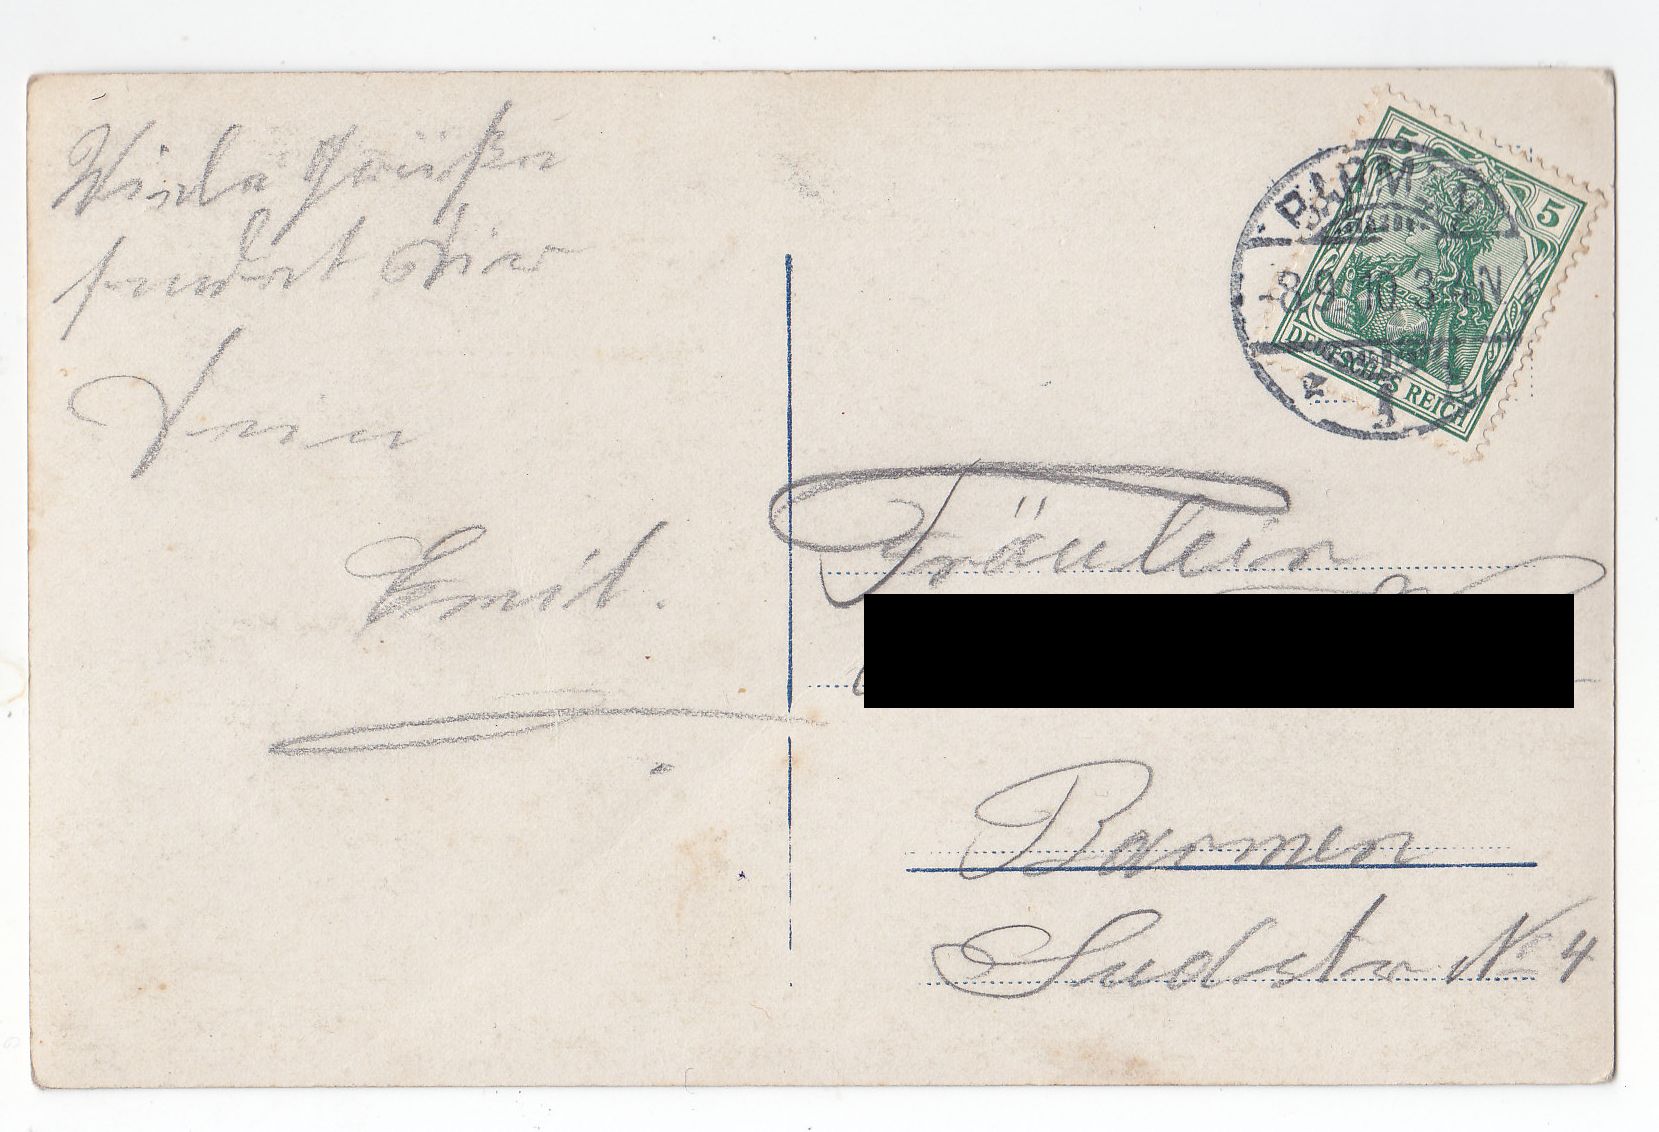 Viele Grüße
sendet Dir
Dein
Emil.
5
5
BARM
8.9.10.3-4N
DEUTSCHES REICH
Fräulein
Barmen
Südstr No 4